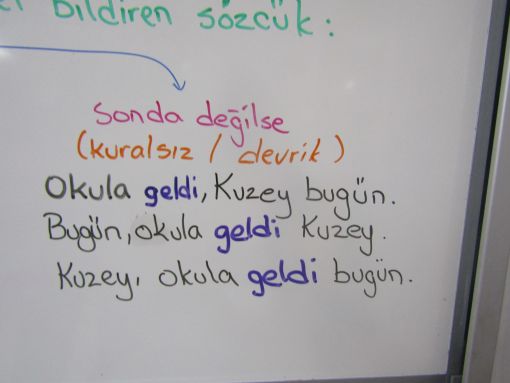 bildiren sözcük:
sonda değilse
(kuralsız / devrik)
Okula geldi, Kuzey bugün.
Bugün, okula geldi Kuzey.
Kuzey, okula geldi bugün.